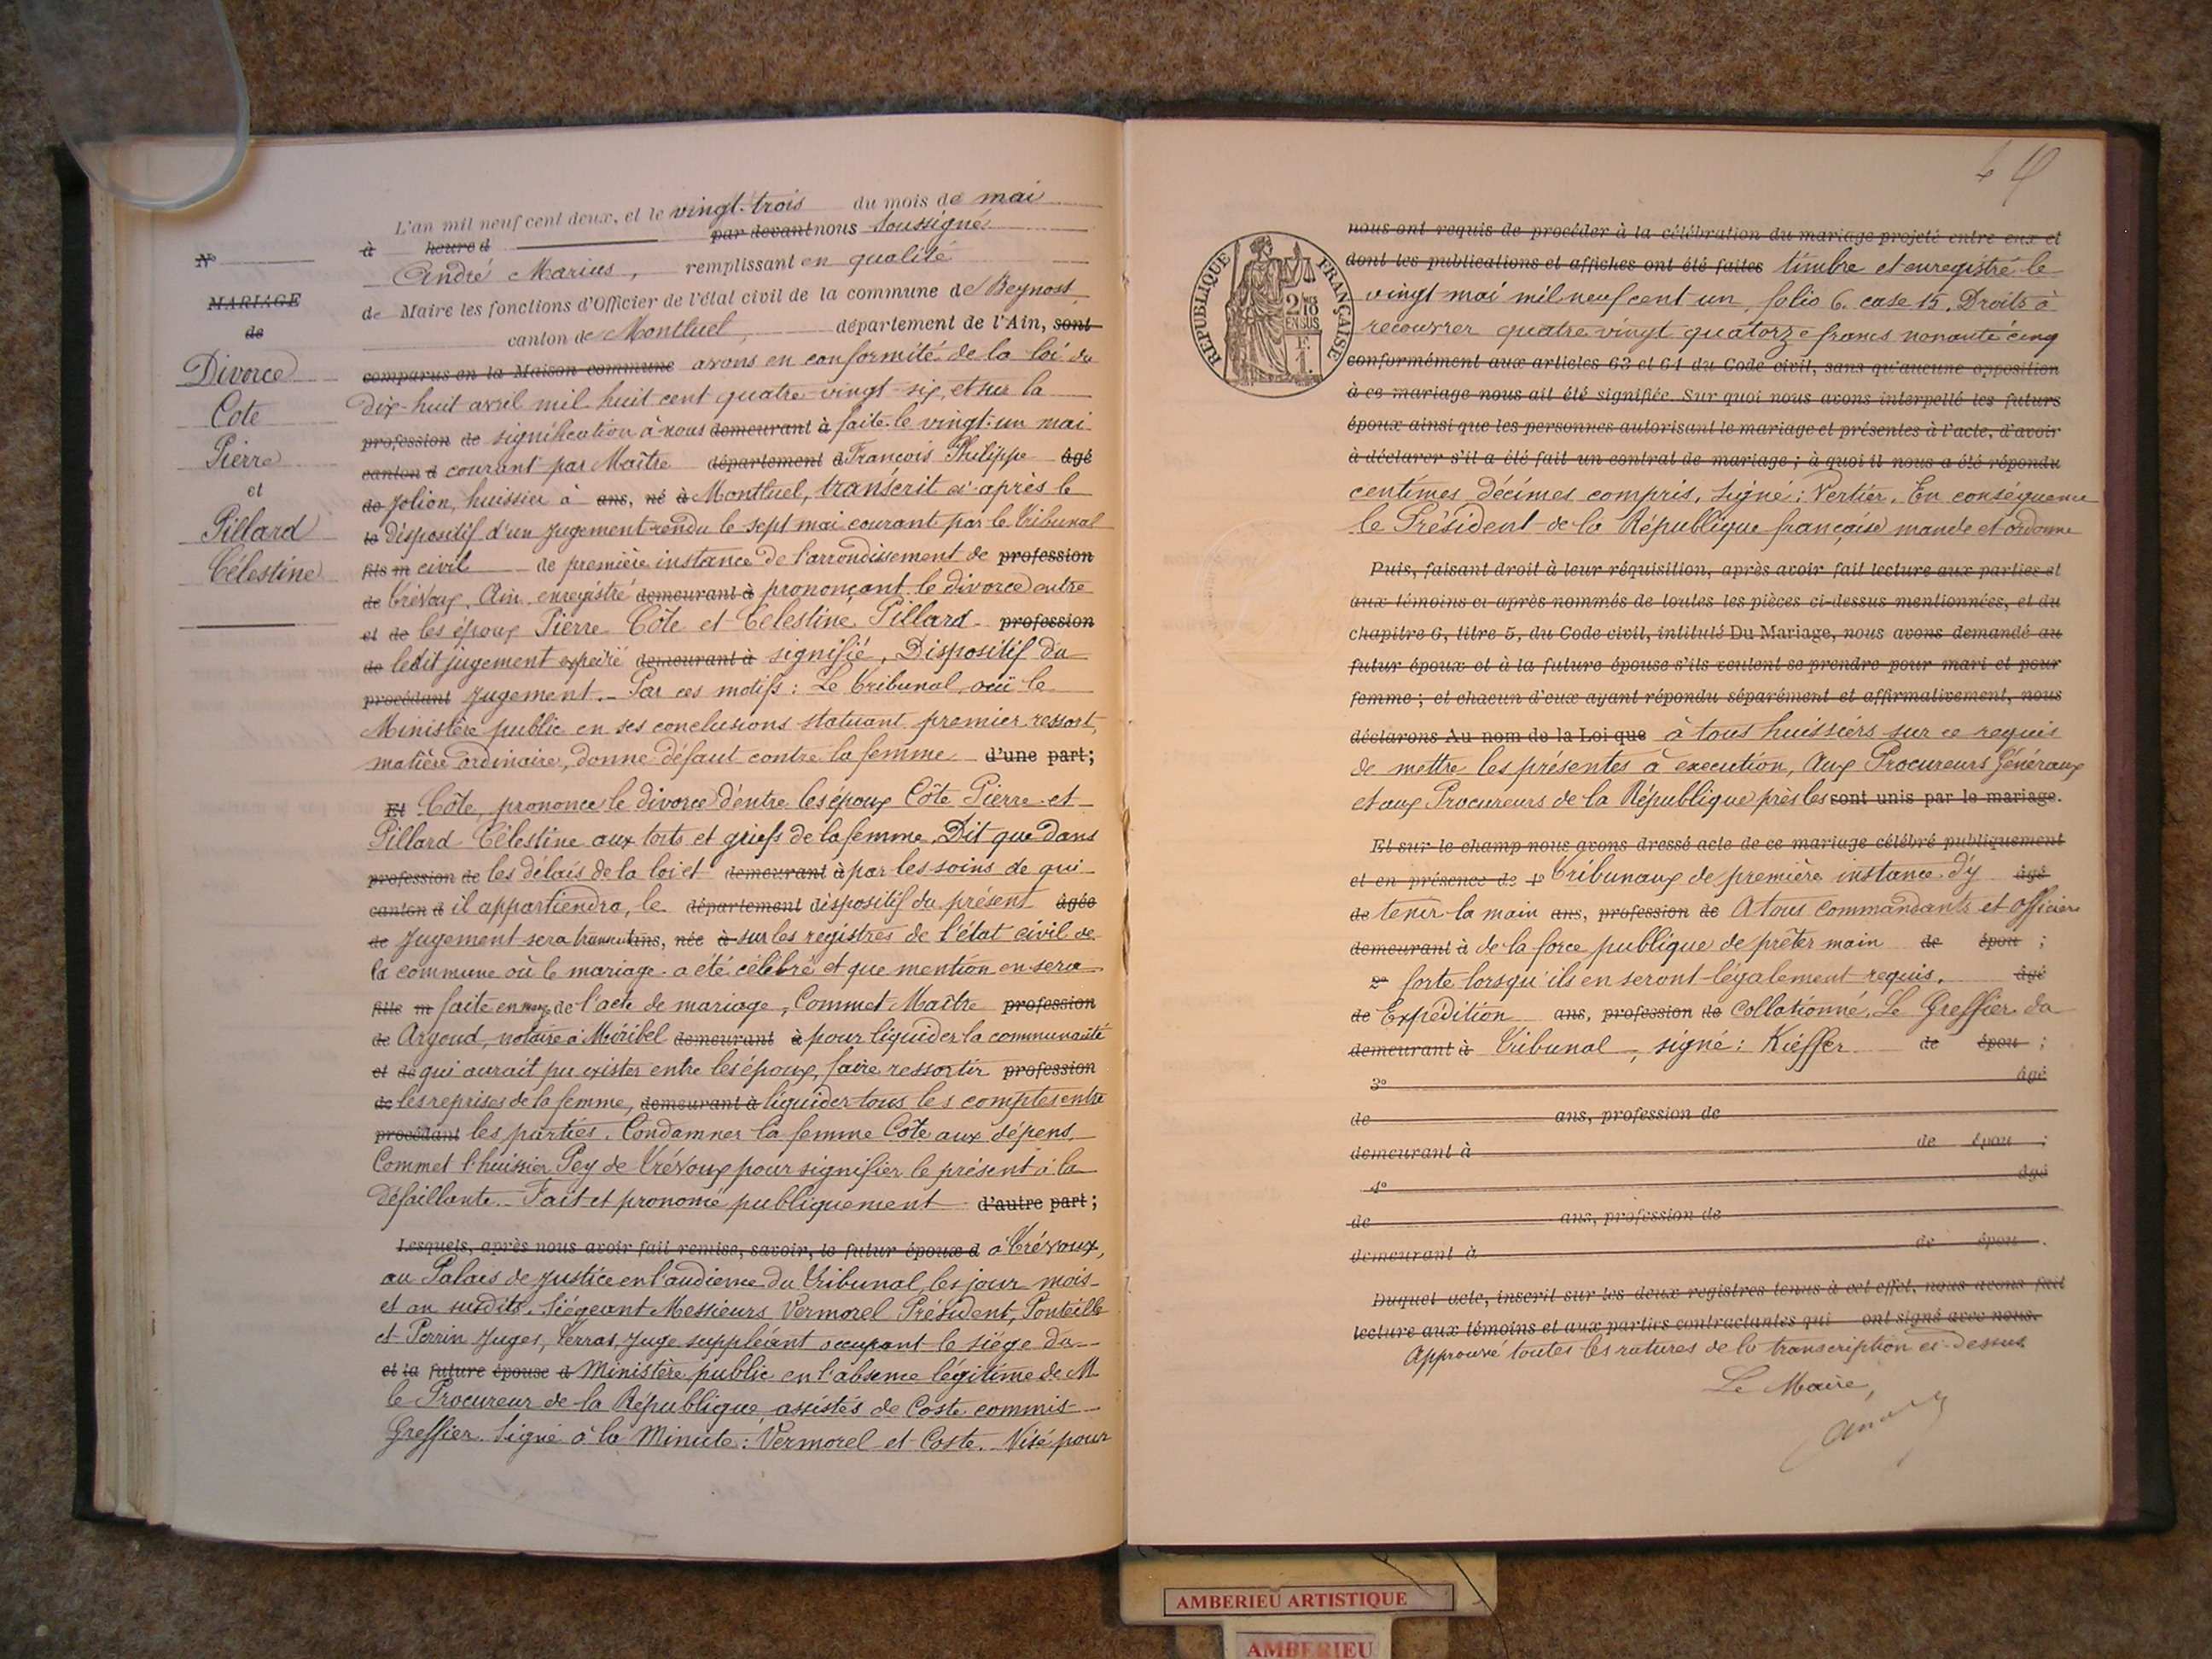 L'an mil neuf cent deux, et le vingt-trois du mois de mai
à heure d par devant nous soussigné
André Marius, remplissant en qualité
de Maire les fonctions d'Officier de l'état civil de la commune de Beynost
canton de Montluel, département de l'Ain, sont
comparus en la Maison commune avons en conformité de la loi du
dix-huit avril mil huit cent quatre-vingt-six, et sur la
profession de signification à nous demeurant à faite le vingt-un mai
canton d courant par Maître département d François Philippe âgé
de Jolion, huissier à ans, né à Montluel, transcrit ci-après le
le dispositif d'un jugement rendu le sept mai courant par le tribunal
fils m civil de première instance de l'arrondissement de profession
de Trévoux, Ain, enregistré demeurant à prononçant le divorce entre
et de les époux Pierre Côte et Célestine Pillard profession
de ledit jugement demeurant à signifié, Dispositif du
procédant jugement. Par ces motifs : Le Tribunal, ouï le
Ministère public en ses conclusions statuant premier ressort,
matière ordinaire, donne défaut contre la femme d'une part;
Et Côte, prononce le divorce d'entre les époux Côte Pierre et
Pillard Célestine aux torts et griefs de la femme. Dit que dans
profession de les délais de la loi et demeurant à par les soins de qui
canton d il appartiendra, le département dispositif du présent âgée
de jugement sera transcrit ans, née à sur les registres de l'état civil de
la commune où le mariage a été célébré et que mention en sera
fille m faite en marge de l'acte de mariage, Commet Maître profession
de Argoud, notaire à Miribel demeurant à pour liquider la communauté
et de qui aurait pu exister entre les époux, faire ressortir profession
de les reprises de la femme, demeurant à liquider tous les comptes entre
procédant les parties. Condamner la femme Côte aux dépens.
Commet l'huissier Pey de Trévoux pour signifier le présent à la
défaillante. Fait et prononcé publiquement d'autre part;
Lesquels, après nous avoir fait remise, savoir, le futur époux d à Trévoux,
au Palais de Justice en l'audience du Tribunal, les jour mois
et an susdits. Siégeant Messieurs Vermorel Président, Ponteille
et Perrin Juges, Verras Juge suppléant occupant le siège du
et la future épouse d Ministère public en l'absence légitime de M
le Procureur de la République, assistés de Coste commis
Greffier. Signé à la Minute : Vermorel et Coste. Visé pour
N°
MARIAGE
de
Divorce
Cote
Pierre
et
Pillard
Célestine
RÉPUBLIQUE FRANÇAISE
2/10
EN SUS
1 F.
nous ont requis de procéder à la célébration du mariage projeté entre eux et
dont les publications et affiches ont été faites timbre et enregistré le
vingt mai mil neuf cent un, folio 6. case 15. Droits à
recouvrer quatre vingt quatorze francs nonante cinq
conformément aux articles 63 et 64 du Code civil, sans qu'aucune opposition
à ce mariage nous ait été signifiée. Sur quoi nous avons interpellé les futurs
époux ainsi que les personnes autorisant le mariage et présentes à l'acte, d'avoir
à déclarer s'il a été fait un contrat de mariage ; à quoi il nous a été répondu
centimes décimes compris. Signé : Vertier. En conséquence
le Président de la République française mande et ordonne
Puis, faisant droit à leur réquisition, après avoir fait lecture aux parties et
aux témoins ci-après nommés de toutes les pièces ci-dessus mentionnées, et du
chapitre 6, titre 5, du Code civil, intitulé Du Mariage, nous avons demandé au
futur époux et à la future épouse s'ils veulent se prendre pour mari et pour
femme ; et chacun d'eux ayant répondu séparément et affirmativement, nous
déclarons Au nom de la Loi que à tous huissiers sur ce requis
de mettre les présentes à execution, Aux Procureurs Généraux
et aux Procureurs de la République près les sont unis par le mariage.
Et sur le champ nous avons dressé acte de ce mariage célébré publiquement
et en présence de 1° Tribunaux de première instance d'y âgé
de tenir la main ans, profession de A tous commandants et officiers
demeurant à de la force publique de prêter main de épou ;
2° forte lorsqu'ils en seront légalement requis. âgé
de Expédition ans, profession de collationné, Le Greffier du
demeurant à Tribunal, signé : Kieffer de épou ;
3° âgé
de ans, profession de
demeurant à de épou ;
4° âgé
de ans, profession de
demeurant à de épou .
Duquel acte, inscrit sur les deux registres tenus à cet effet, nous avons fait
lecture aux témoins et aux parties contractantes qui ont signé avec nous.
Approuvé toutes les ratures de la transcription ci-dessus
Le Maire,
AMBERIEU ARTISTIQUE
AMBERIEU